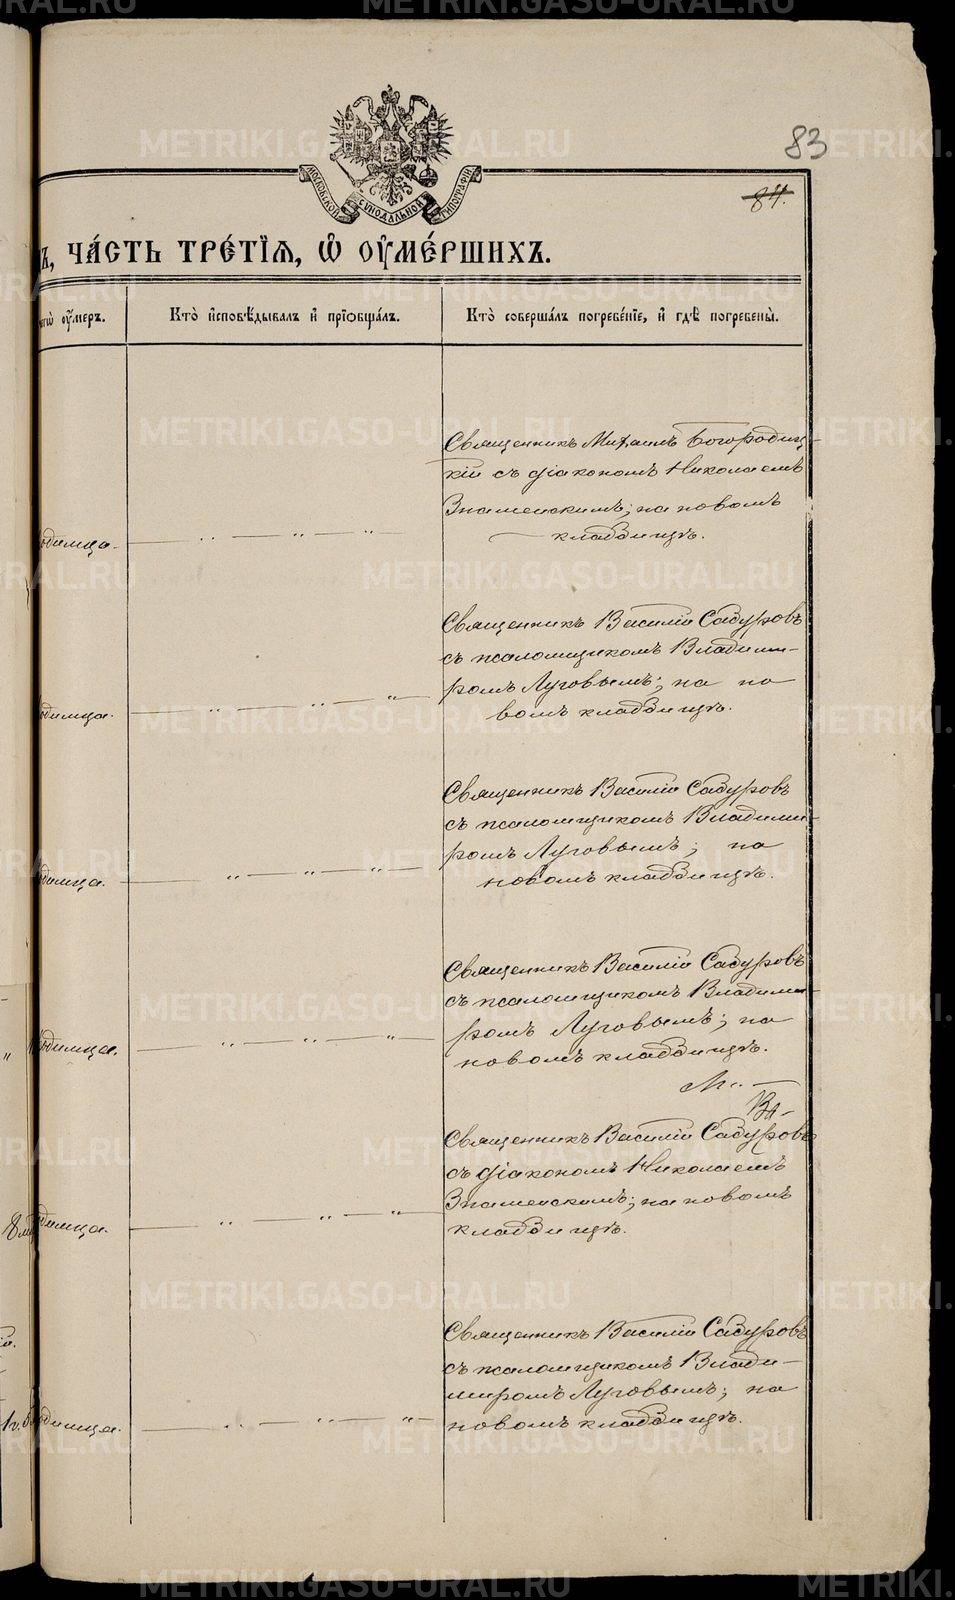 83
84.
МОСКОВСКОЙ СѴНОДАЛЬНОЙ ТИПОГРАФІИ
ЧА́СТЬ ТРЕ́ТІЯ, Ѽ ОУ҆МЕ́РШИХЪ.
оу҆́меръ.
Кто̀ и҆сповѣ́дывалъ и҆ прїѡбща́лъ.
Кто̀ соверша́лъ погребе́нїе, и҆ гдѣ̀ погребены̀.
Священникъ Михаилъ Богородиц-
кій съ діакономъ Николаемъ
Знаменскимъ; на новомъ
кладбищѣ.
одимца. — " — " — "
Священникъ Василій Сабуровъ
съ псаломщикомъ Владими-
ромъ Луговымъ; на но
вомъ кладбищѣ.
одимца. — " — " — "
Священникъ Василій Сабуровъ
съ псаломщикомъ Владими-
ромъ Луговымъ; на
новомъ кладбищѣ.
димца. — " — " — "
Священникъ Василій Сабуровъ
съ псаломщикомъ Владими-
ромъ Луговымъ; на
новомъ кладбищѣ.
" одимца. — " — " — "
М. —
Вл-
Священникъ Василій Сабуровъ
съ діакономъ Николаемъ
Знаменскимъ; на новомъ
кладбищѣ.
димца. — " — " — "
Священникъ Василій Сабуровъ
съ псаломщикомъ Влади-
миромъ Луговымъ; на
новомъ кладбищѣ.
одимца. — " — " — "
METRIKI.GASO-URAL.RU